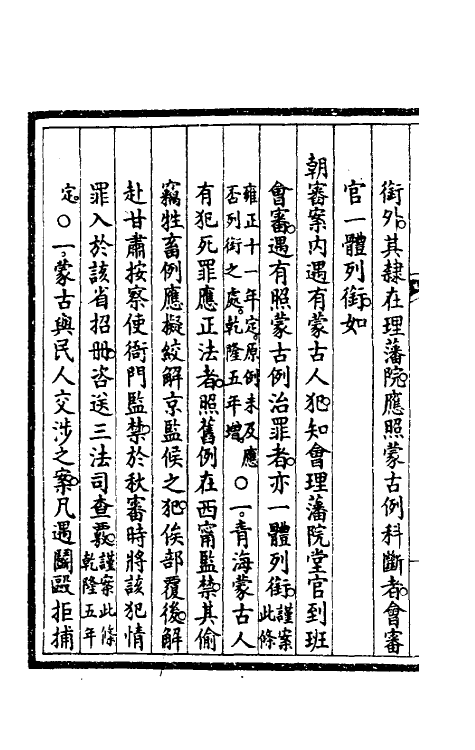 銜外其隸在理藩院應照蒙古例科斷者會審
官一體列銜如
朝審案內遇有蒙古人犯知會理藩院堂官到班
會審遇有照蒙古例治罪者亦一體列銜謹案此條
雍正十一年定原例未及應否列銜之處乾隆五年增○一青海蒙古人
有犯死罪應正法者照舊例在西甯監禁其偷
竊牲畜例應擬絞解京監候之犯俟部覆後解
赴甘肅按察使衙門監禁於秋審時將該犯情
罪入於該省招冊咨送三法司查覈謹案此條乾隆五年
定○一蒙古與民人交涉之案凡遇鬬毆拒捕